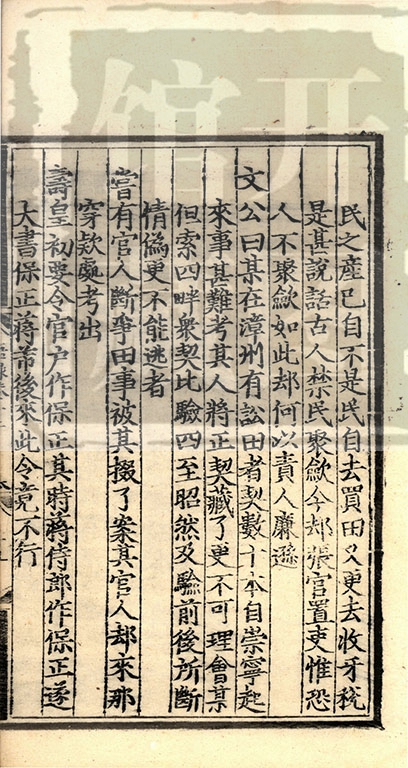 民之産已自不是民自去買田又更去收牙稅
是甚說話古人禁民聚歛今却張官置吏惟恐
人不聚歛如此却何以責人廉遜
文公曰某在漳州有訟田者契數十本自崇寧起
來事甚難考其人將正契藏了更不可理會某
但索四畔衆契比驗四至昭然及驗前後所斷
情僞更不能逃者
嘗有官人斷爭田事被其掇了案其官人却來那
穿欵處考出
壽皇初要令官户作保正其時蔣侍郎作保正遂
大書保正蔣芾後來此令竟不行